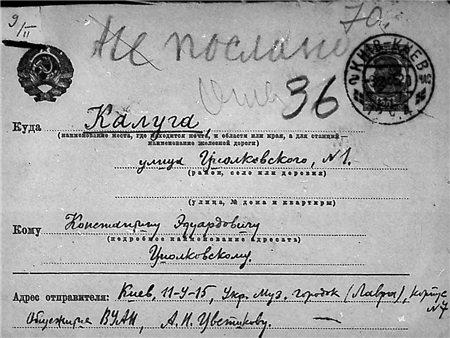 9/II
70.
Не послано
36
КИЇВ КИЕВ
Куда Калуга,
(наименование места, где находится почта, и области или края, а для станций—
наименование железной дороги)
улица Циолковского, №1.
(район, село или деревня)
(улица, № дома и квартиры)
Кому Константину Эдуардовичу
(подробное наименование адресата)
Циолковскому.
Адрес отправителя: Киев, 11-У-15, Укр. Муз. городок (Лавра), корпус
№7
Общежитие ВУАН, А. И. Цветикову.